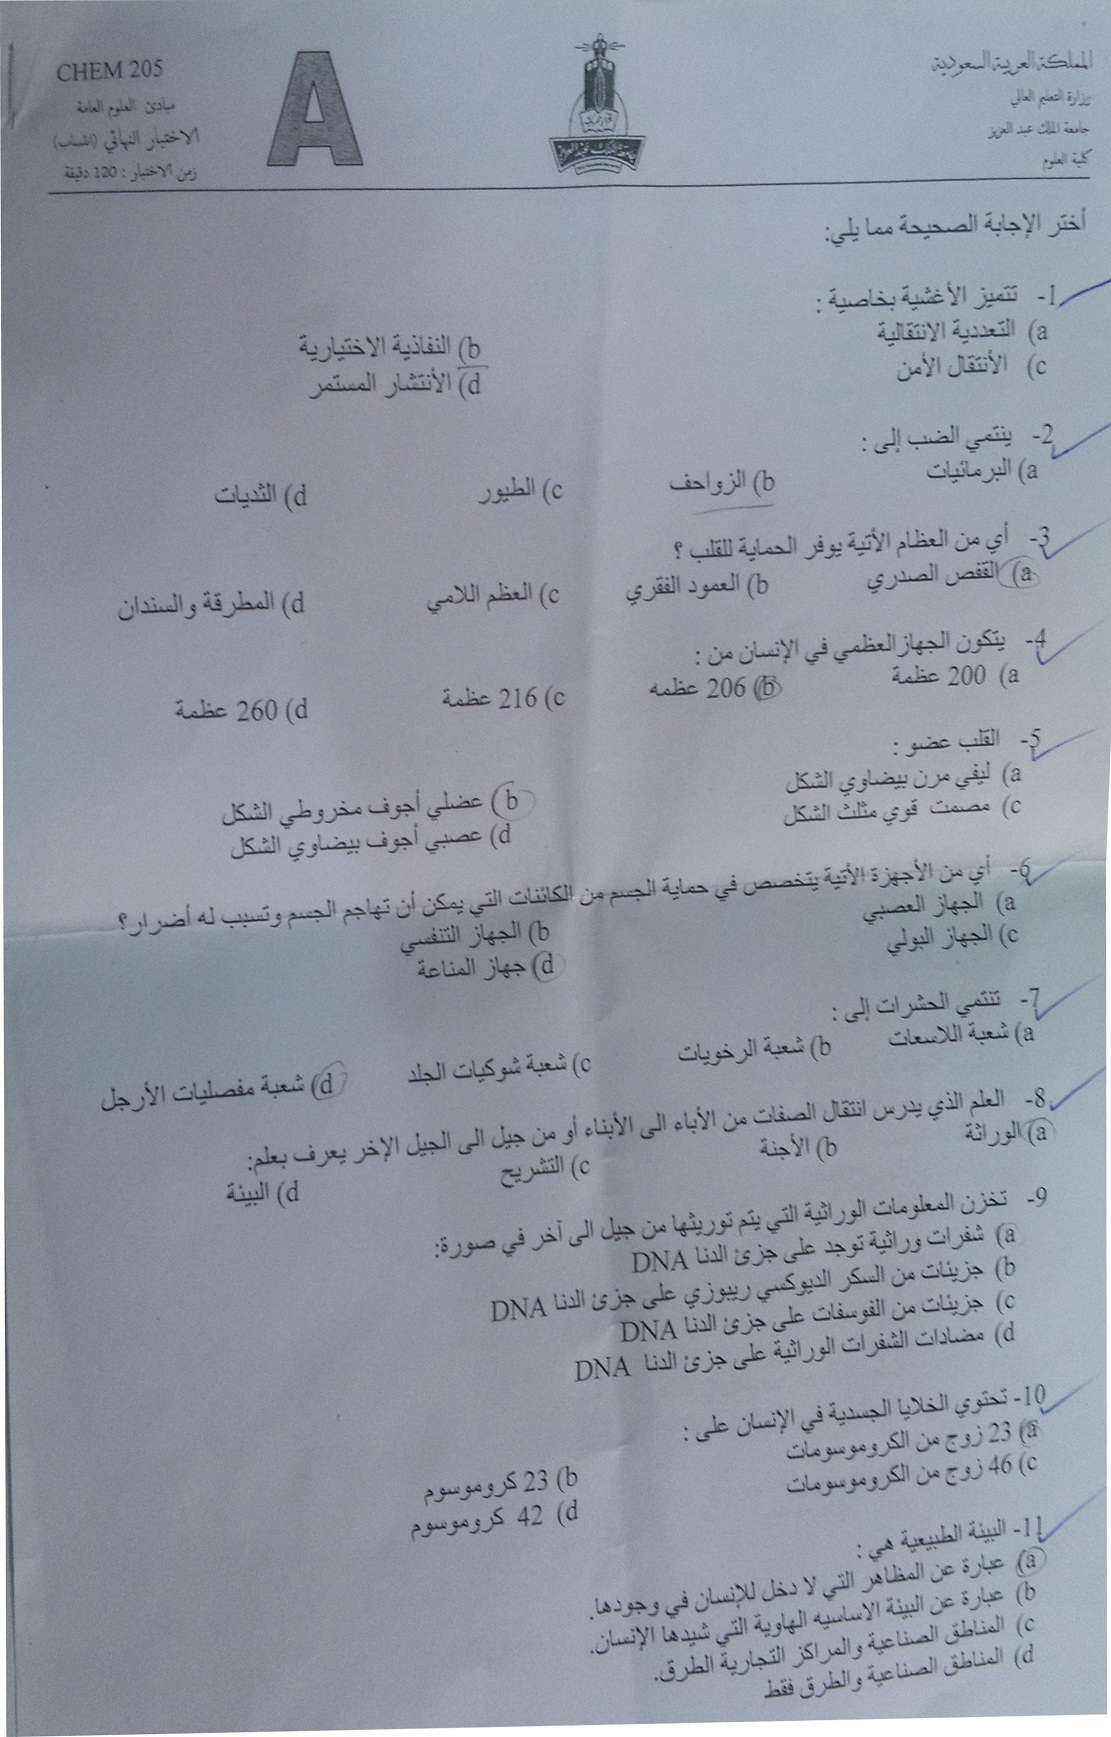 المملكة العربية السعودية
وزارة التعليم العالي
جامعة الملك عبد العزيز
كلية العلوم
A
CHEM 205
مبادئ العلوم العامة
الاختبار النهائي (انتساب)
زمن الاختبار : 120 دقيقة
أختر الإجابة الصحيحة مما يلي:
1- تتميز الأغشية بخاصية :
a) التعددية الانتقالية b) النفاذية الاختيارية
c) الأنتقال الأمن d) الأنتشار المستمر
2- ينتمي الضب إلى :
a) البرمائيات b) الزواحف c) الطيور d) الثديات
3- أي من العظام الأتية يوفر الحماية للقلب ؟
a) القفص الصدري b) العمود الفقري c) العظم اللامي d) المطرقة والسندان
4- يتكون الجهاز العظمي في الإنسان من :
a) 200 عظمة b) 206 عظمه c) 216 عظمة d) 260 عظمة
5- القلب عضو :
a) ليفي مرن بيضاوي الشكل b) عضلي أجوف مخروطي الشكل
c) مصمت قوي مثلث الشكل d) عصبي أجوف بيضاوي الشكل
6- أي من الأجهزة الأتية يتخصص في حماية الجسم من الكائنات التي يمكن أن تهاجم الجسم وتسبب له أضرار؟
a) الجهاز العصبي b) الجهاز التنفسي
c) الجهاز البولي d) جهاز المناعة
7- تنتمي الحشرات إلى :
a) شعبة اللاسعات b) شعبة الرخويات c) شعبة شوكيات الجلد d) شعبة مفصليات الأرجل
8- العلم الذي يدرس انتقال الصفات من الأباء الى الأبناء أو من جيل الى الجيل الإخر يعرف بعلم:
a) الوراثة b) الأجنة c) التشريح d) البيئة
9- تخزن المعلومات الوراثية التي يتم توريثها من جيل الى آخر في صورة:
a) شفرات وراثية توجد على جزئ الدنا DNA
b) جزيئات من السكر الديوكسي ريبوزي على جزئ الدنا DNA
c) جزيئات من الفوسفات على جزئ الدنا DNA
d) مضادات الشفرات الوراثية على جزئ الدنا DNA
10- تحتوي الخلايا الجسدية في الإنسان على :
a) 23 زوج من الكروموسومات b) 23 كروموسوم
c) 46 زوج من الكروموسومات d) 42 كروموسوم
11- البيئة الطبيعية هي :
a) عبارة عن المظاهر التي لا دخل للإنسان في وجودها.
b) عبارة عن البيئة الاساسيه الهاوية التي شيدها الإنسان.
c) المناطق الصناعية والمراكز التجارية الطرق.
d) المناطق الصناعية والطرق فقط